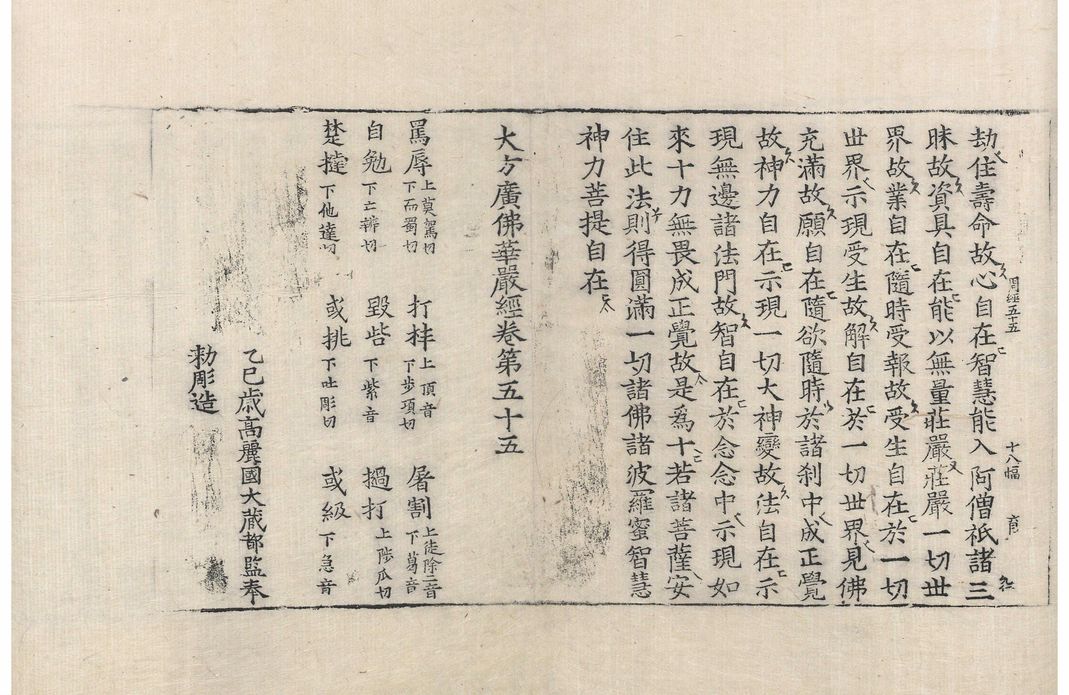 劫住壽命故心自在智慧能入阿僧祇諸三
周經五十五 十八幅
昧故資具自在能以無量莊嚴莊嚴一切世
界故業自在隨時受報故受生自在於一切
世界示現受生故解自在於一切世界見佛
充滿故願自在隨欲隨時於諸刹中成正覺
故神力自在示現一切大神變故法自在示
現無邊諸法門故智自在於念念中示現如
來十力無畏成正覺故是爲十若諸菩薩安
住此法則得圓滿一切諸佛諸波羅蜜智慧
神力菩提自在
大方廣佛華嚴經卷第五十五
罵辱上莫駕切下而蜀切 打棒上頂音下步項切 屠割上徒除二音下葛音
自勉下亡辨切 毀呰下紫音 撾打上陟瓜切
楚撻下他達切 或挑下吐彫切 或級下急音
乙巳歲高麗國大藏都監奉
勅彫造